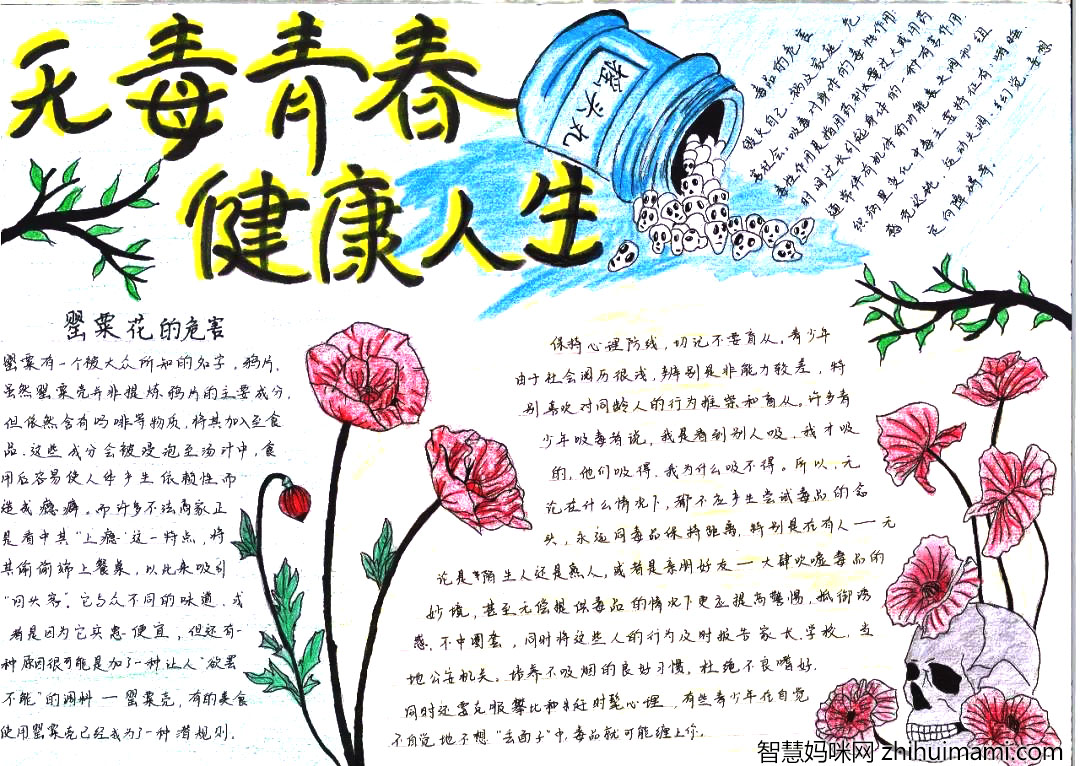 无毒青春
健康人生
摇头丸
毒品的危害
毁灭自己、祸及家庭、危
害社会。吸毒对身体的毒性作用:
毒性作用是指用药剂量过大或用药
时间过长引起身体的一种有害作用,
通常伴有机体的功能失调和组
织病理变化。中毒主要特征有:嗜睡、
感觉迟钝、运动失调、幻觉、妄想、
定向障碍等。
罂粟花的危害
罂粟有一个被大众所知的名字,鸦片。
虽然罂粟壳并非提炼鸦片的主要成分,
但依然含有吗啡等物质,将其加入至食
品,这些成分会被浸泡至汤汁中,食
用后容易使人体产生依赖性而
造成瘾癖。而许多不法商家正
是看中其“上瘾”这一特点,将
其偷偷锦上餐桌,以此来吸引
“回头客”。它与众不同的味道,或
者是因为它实惠便宜,但还有一
种原因很可能是加了一种让人“欲罢
不能”的调料一罂粟壳,有的美食
使用罂粟壳已经成为了一种潜规则。
保持心理防线,切记不要盲从。青少年
由于社会阅历很浅,辨别是非能力较差,特
别喜欢对同龄人的行为推崇和盲从。许多青
少年吸毒者说,我是看到别人吸,我才吸
的,他们吸得,我为什么吸不得。所以,无
论在什么情况下,都不应产生尝试毒品的念
头,永远同毒品保持距离,特别是在有人一无
论是陌生人还是熟人,或者是亲朋好友一大肆吹嘘毒品的
妙境,甚至无偿提供毒品的情况下更应提高警惕,抵御诱
惑,不中圈套,同时将这些人的行为及时报告家长、学校、当
地公安机关。培养不吸烟的良好习惯,杜绝不良嗜好。
同时还要克服攀比和赶时髦心理,有些青少年在自觉
不自觉地不想“丢面子”中,毒品就可能缠上你。
智慧妈咪网 zhihuimami.com